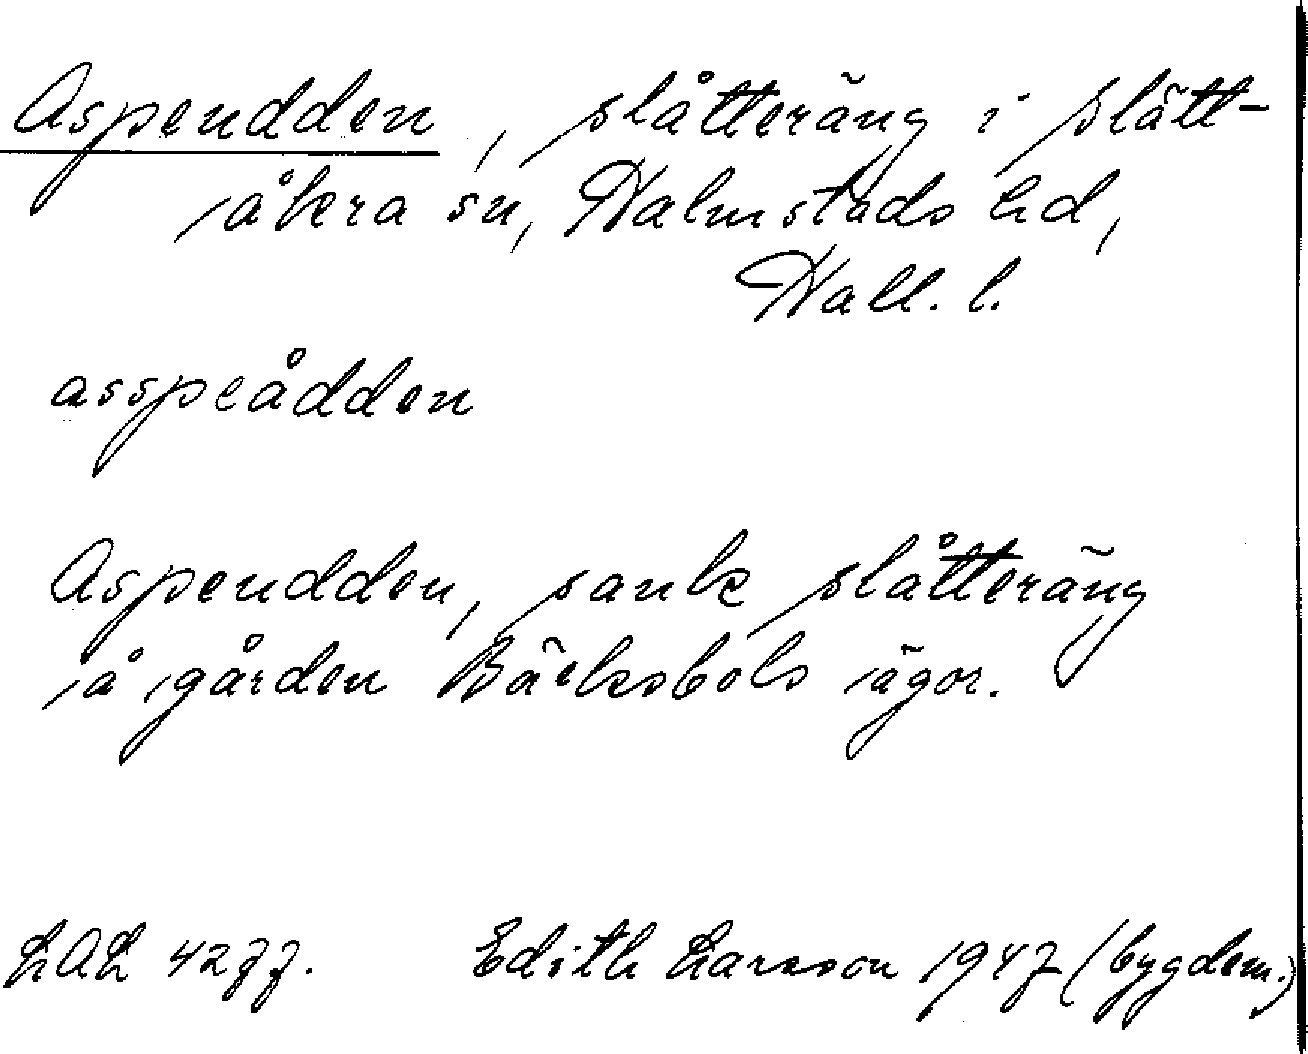 Aspeudden, slåtteräng i Slätt-
åkra sn, Halmstads hd,
Hall. l.
asspeådden
Aspeudden, sank slåtteräng
å gården Bäcksbols ägor.
LAL 4277.   Edith Larsson 1947 (bygdem.)